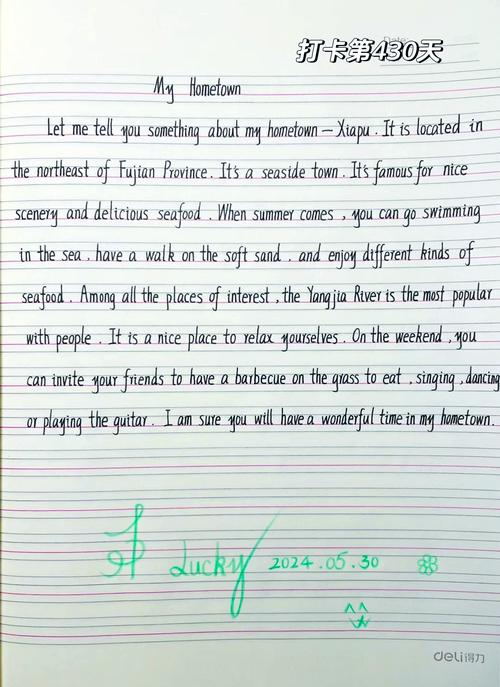 打卡第430天
Date:
My Hometown
Let me tell you something about my hometown — Xiapu. It is located in
the northeast of Fujian Province. It's a seaside town. It's famous for nice
scenery and delicious seafood. When summer comes, you can go swimming
in the sea, have a walk on the soft sand, and enjoy different kinds of
seafood. Among all the places of interest, the Yangjia River is the most popular
with people. It is a nice place to relax yourselves. On the weekend, you
can invite your friends to have a barbecue on the grass to eat, singing, dancing
or playing the guitar. I am sure you will have a wonderful time in my hometown.
Lucky 2024.05.30
deli得力